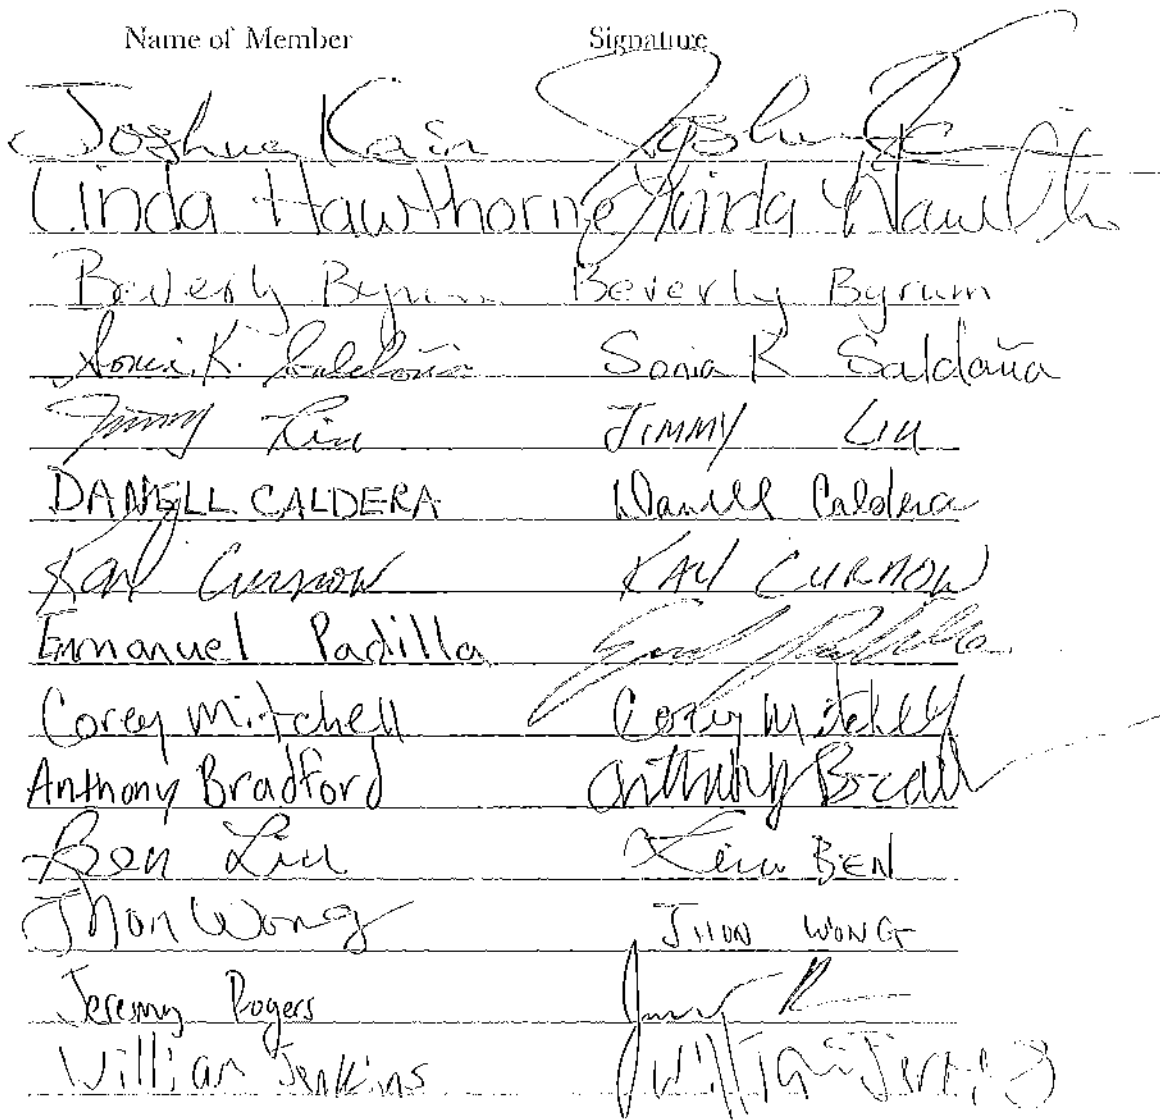 Name of Member Signature
Joshua Kain Joshua
Linda Hawthorne Linda Hawth
Beverly Byrum Beverly Byrum
Sonia K. Saldaña Sonia K Saldaña
Jimmy Liu JIMMY LIU
DANELL CALDERA Danell Caldera
Karl Curnow KARL CURNOW
Emmanuel Padilla Padilla
Corey Mitchell Corey Mitchell
Anthony Bradford Anthony Brad
Ben Liu Liu BEN
Jhon Wong JHON WONG
Jeremy Rogers
William Jenkins William Jenkins